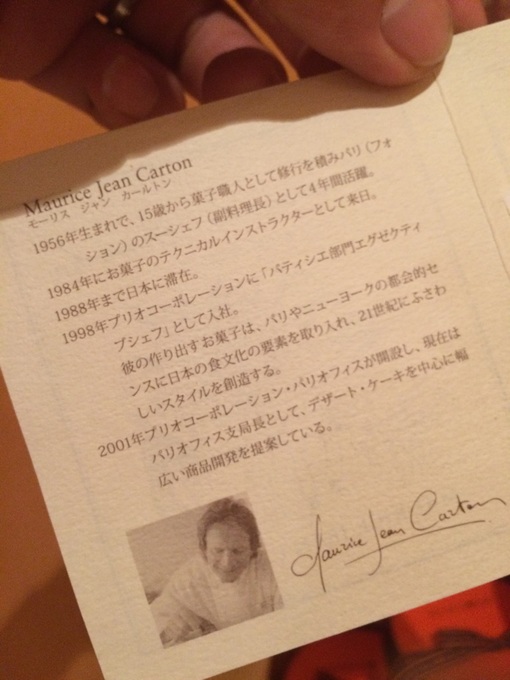 Maurice Jean Carton
モーリス ジャン カールトン
1956年生まれで、15歳から菓子職人として修行を積みパリ（フォ
ション）のスーシェフ（副料理長）として4年間活躍。
1984年にお菓子のテクニカルインストラクターとして来日。
1988年まで日本に滞在。
1998年ブリオコーポレーションに「パティシエ部門エグゼクティ
ブシェフ」として入社。
彼の作り出すお菓子は、パリやニューヨークの都会的セ
ンスに日本の食文化の要素を取り入れ、21世紀にふさわ
しいスタイルを創造する。
2001年ブリオコーポレーション・パリオフィスが開設し、現在は
パリオフィス支局長として、デザート・ケーキを中心に幅
広い商品開発を提案している。
Maurice Jean Carton